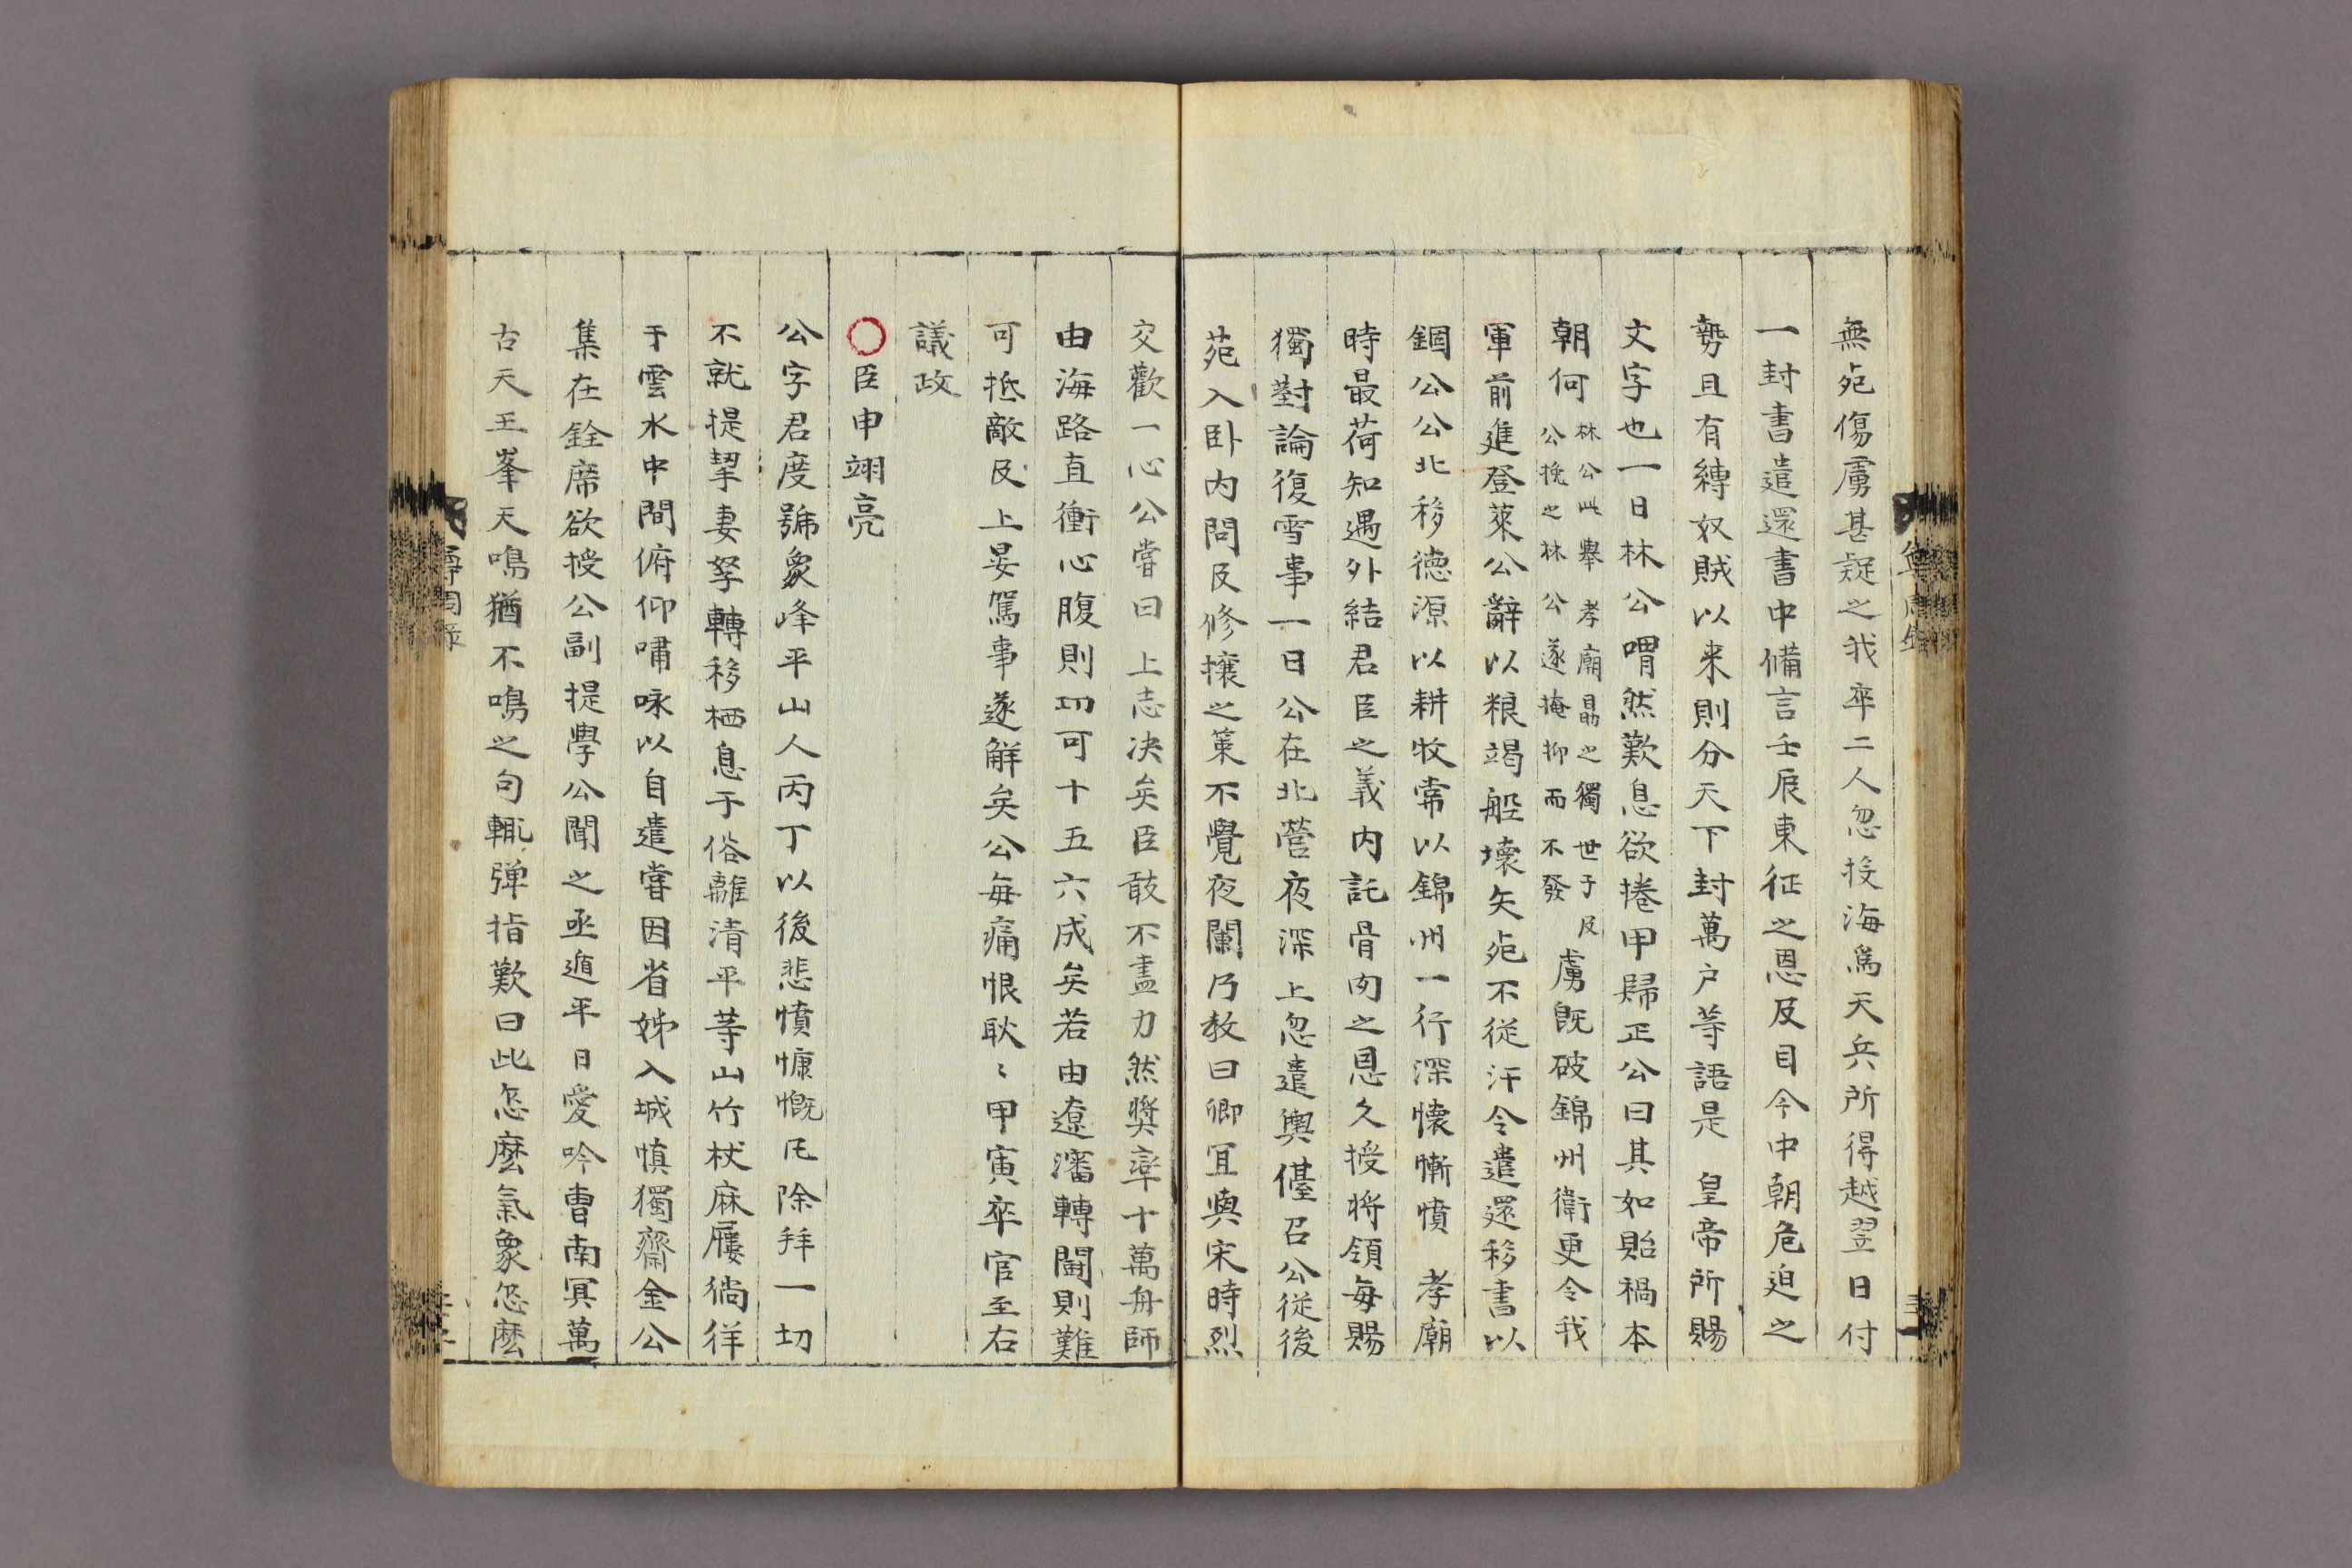 無死傷虜甚疑之我卒二人忽投海爲天兵所得越翌日付
一封書遣還書中備言壬辰東征之恩及目今中朝危迫之
勢且有縛奴賊以来則分天下封萬户等語是 皇帝所賜
文字也一日林公喟然歎息欲捲甲歸正公曰其如貽禍本
朝何
林公此擧 孝廟勗之獨 世子及
公挽之林公遂掩抑而不發
虜既破錦州衛更令我
軍前進登萊公辭以粮竭船壞矢死不從汗令遣還移書以
錮公公北移德源以耕牧常以錦州一行深懷慚憤 孝廟
時最荷知遇外結君臣之義内託骨肉之恩久授將領每賜
獨對論復雪事一日公在北營夜深 上忽遣輿儓召公從後
苑入卧内問及修攘之策不覺夜闌乃教曰卿宜與宋時烈
交歡一心公嘗曰 上志决矣臣敢不盡力然奬率十萬舟師
由海路直衝心腹則功可十五六成矣若由遼瀋轉鬪則難
可抵敵及 上晏駕事遂解矣公每痛恨耿〻甲寅卒官至右
議政
○臣申翊亮
公字君度號象峰平山人丙丁以後悲憤慷慨凡除拜一切
不就提挈妻孥轉移栖息于俗離清平等山竹杖麻屨徜徉
于雲水中間俯仰嘯咏以自遣嘗因省姊入城愼獨齋金公
集在銓席欲授公副提學公聞之亟遁平日愛吟曺南冥萬
古天王峯天鳴猶不鳴之句輒弹指歎曰此怎麽氣象怎麽